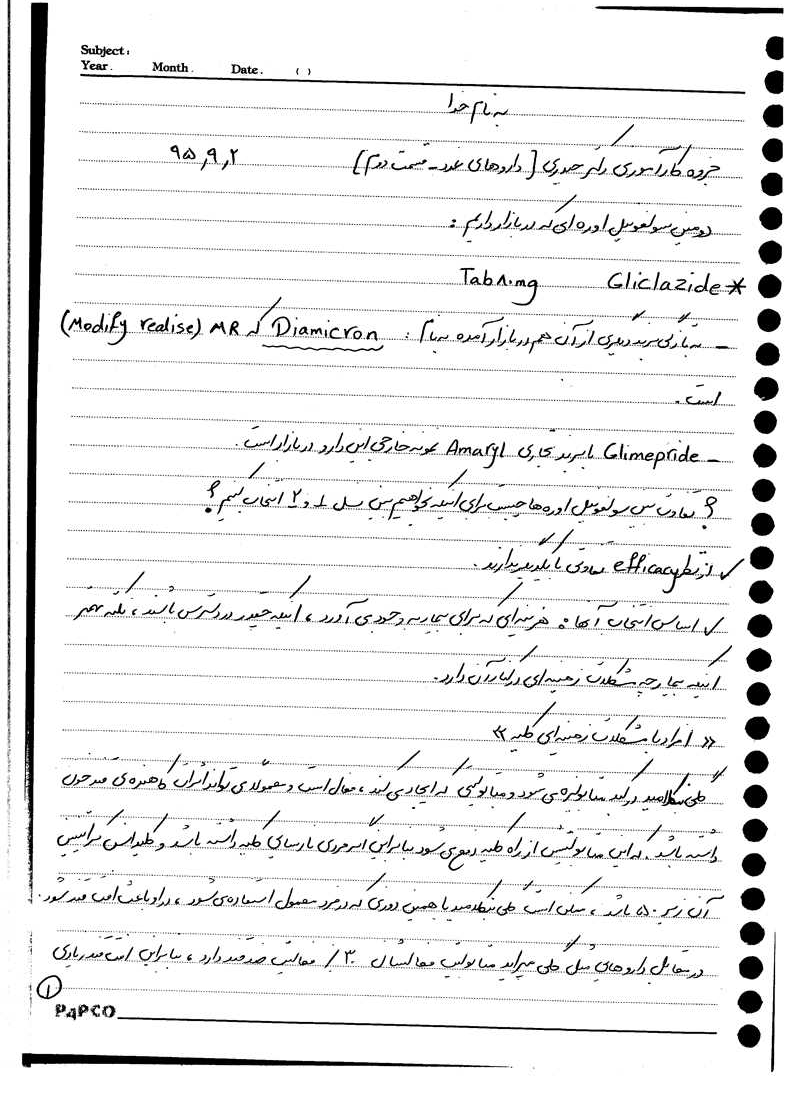 Subject:
Year. Month. Date. ( )
به نام خدا
جزوه کارآموزی دکتر حیدری [داروهای غدد - قسمت دوم] ۹۵,۹,۲
دومین سولفونیل اوره ای که در بازار داریم :
* Gliclazide Tab ۸۰mg
– به تازگی برند دیگری از آن هم در بازار آمده به نام : Diamicron که MR (Modify realise)
است .
– Glimepride با برند تجاری Amaryl نمونه خارجی این دارو در بازار است .
؟ تفاوت بین سولفونیل اوره ها چیست برای اینکه بخواهیم بین نسل ۱ و ۲ انتخاب کنیم ؟
✓ از نظر efficacy تفاوتی با یکدیگر ندارند .
✓ اساس انتخاب آنها : هزینه ای که برای بیمار به وجود می آورد ، اینکه چقدر در دسترس باشند ، نکته مهمتر
اینکه بیمار چه مشکلات زمینه ای در کنار آن دارد .
« افراد با مشکلات زمینه ای کلیه »
گلی بنکلامید در کبد متابولیزه می شود و متابولیتی که ایجاد می کند ، فعال است و معمولا می تواند اثرات کاهنده ی قند خون
داشته باشد . که این متابولیتش از راه کلیه دفع می شود بنابراین اگر فردی نارسایی کلیه داشته باشد و کلیرانس کراتینین
آن زیر ۵۰ باشد ، ممکن است گلی بنکلامید با همین دوزی که در فرد معمول استفاده می شود ، در او باعث افت قند شود .
در مقابل داروهای مثل گلی میپراید متابولیت فعالیتشان ۳۰٪ فعالیت ضد قند دارد ، بنابراین افت قند زیادی
۱
PAPCO